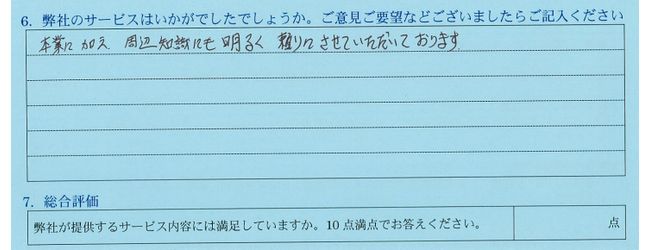 6. 弊社のサービスはいかがでしたでしょうか。ご意見ご要望などございましたらご記入ください
本業に加え 周辺知識にも明るく 頼りにさせていただいております
7. 総合評価
弊社が提供するサービス内容には満足していますか。10点満点でお答えください。 点